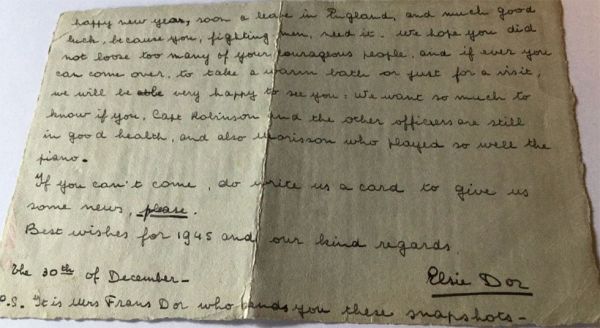 happy new year, soon a leave in England, and much good
luck, because you, fighting men, need it. We hope you did
not loose too many of your courageous people, and if ever you
can come over, to take a warm bath or just for a visit,
we will be able very happy to see you: We want so much to
know if you, Capt Robinson and the other officers are still
in good health, and also Morisson who played so well the
piano.
If you can't come, do write us a card to give us
some news, please.
Best wishes for 1945 and our kind regards.
The 30th of December-
Elsie Dor
P.S. It is Mrs Frans Dor who sends you these snapshots-